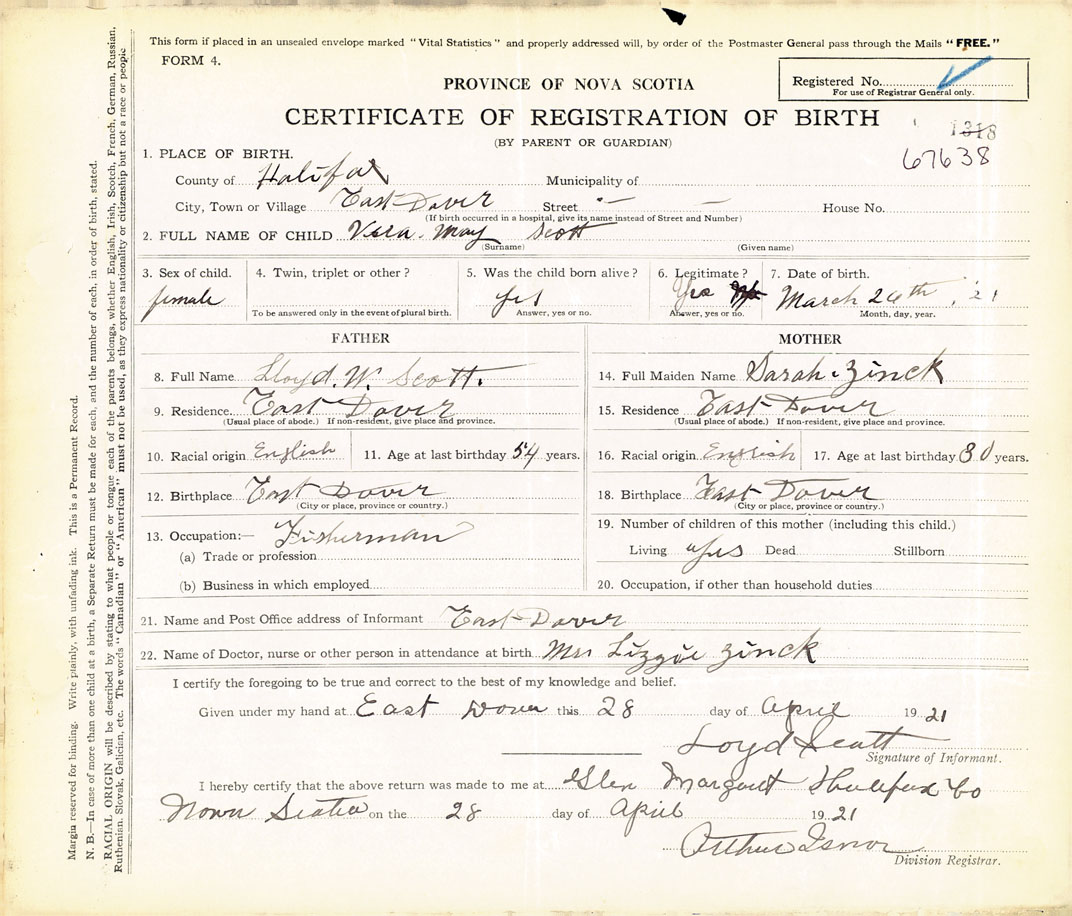 This form if placed in an unsealed envelope marked "Vital Statistics" and properly addressed will, by order of the Postmaster General pass through the Mails "FREE."
FORM 4.
PROVINCE OF NOVA SCOTIA
Registered No.
For use of Registrar General only.
CERTIFICATE OF REGISTRATION OF BIRTH
(BY PARENT OR GUARDIAN)
1318
67638
1. PLACE OF BIRTH.
County of Halifax Municipality of
City, Town or Village East Dover Street — — House No.
(If birth occurred in a hospital, give its name instead of Street and Number)
2. FULL NAME OF CHILD Vera. May Scott
(Surname) (Given name)
3. Sex of child. 4. Twin, triplet or other? 5. Was the child born alive? 6. Legitimate? 7. Date of birth.
female yes Yes March 24th, 21
To be answered only in the event of plural birth. Answer, yes or no. Answer, yes or no. Month, day, year.
FATHER MOTHER
8. Full Name Lloyd. W. Scott. 14. Full Maiden Name Sarah. Zinck
9. Residence. East Dover 15. Residence East Dover
(Usual place of abode.) If non-resident, give place and province. (Usual place of abode.) If non-resident, give place and province.
10. Racial origin English 11. Age at last birthday 54 years. 16. Racial origin English 17. Age at last birthday 30 years.
12. Birthplace East Dover 18. Birthplace East Dover
(City or place, province or country.) (City or place, province or country.)
13. Occupation:— Fisherman 19. Number of children of this mother (including this child.)
(a) Trade or profession Living yes Dead Stillborn
(b) Business in which employed 20. Occupation, if other than household duties
21. Name and Post Office address of Informant East Dover
22. Name of Doctor, nurse or other person in attendance at birth Mrs Lizzie Zinck
I certify the foregoing to be true and correct to the best of my knowledge and belief.
Given under my hand at East Dover this 28 day of April 1921
Loyd Scott
Signature of Informant.
I hereby certify that the above return was made to me at Glen Margaret Halifax Co
Nova Scotia on the 28 day of April 1921
Arthur Isnor
Division Registrar.
Margin reserved for binding. Write plainly, with unfading ink. This is a Permanent Record.
N. B.—In case of more than one child at a birth, a Separate Return must be made for each, and the number of each, in order of birth, stated.
RACIAL ORIGIN will be described by stating to what people or tongue each of the parents belongs, whether English, Irish, Scotch, French, German, Russian,
Ruthenian, Slovak, Galician, etc. The words "Canadian" or "American" must not be used, as they express nationality or citizenship but not a race or people